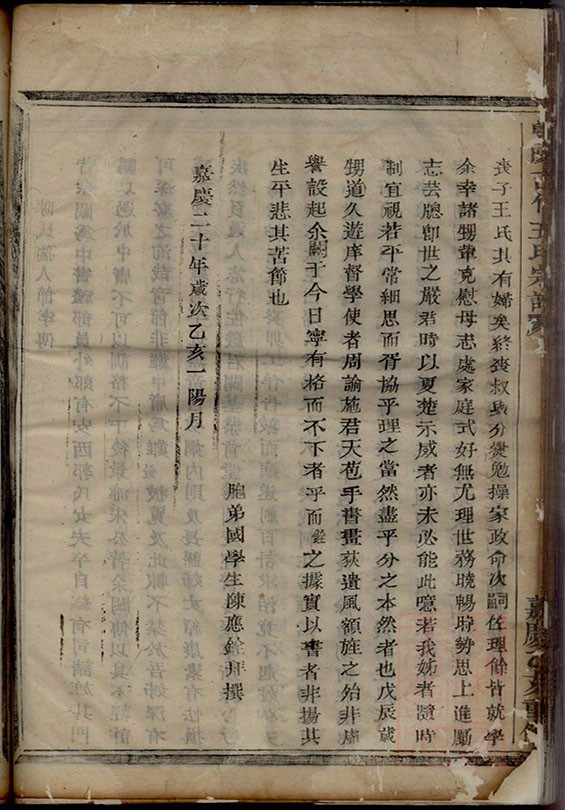 喪子王氏其有婦矣終喪叔欲分爨勉操家政命次嗣任理餘皆就學
余幸諸甥輩克慰母志處家庭式好無尤理世務曉暢時勢思上進勵
志芸牕卽世之嚴君時以夏楚示威者亦未必能此噫若我姊者隨時
制宜視若平常細思而胥協乎理之當然盡乎分之本然者也戊辰歲
甥道久遊庠督學使者周諭施君天苞手書畫荻遺風額旌之殆非虛
譽設起余闕于今日寧有格而不下者乎而之據實以書者非揚其
生平悲其苦節也
嘉慶二十年歲次乙亥一陽月
胞弟國學生陳應銓拜撰
王氏宗譜
嘉慶乙亥重修